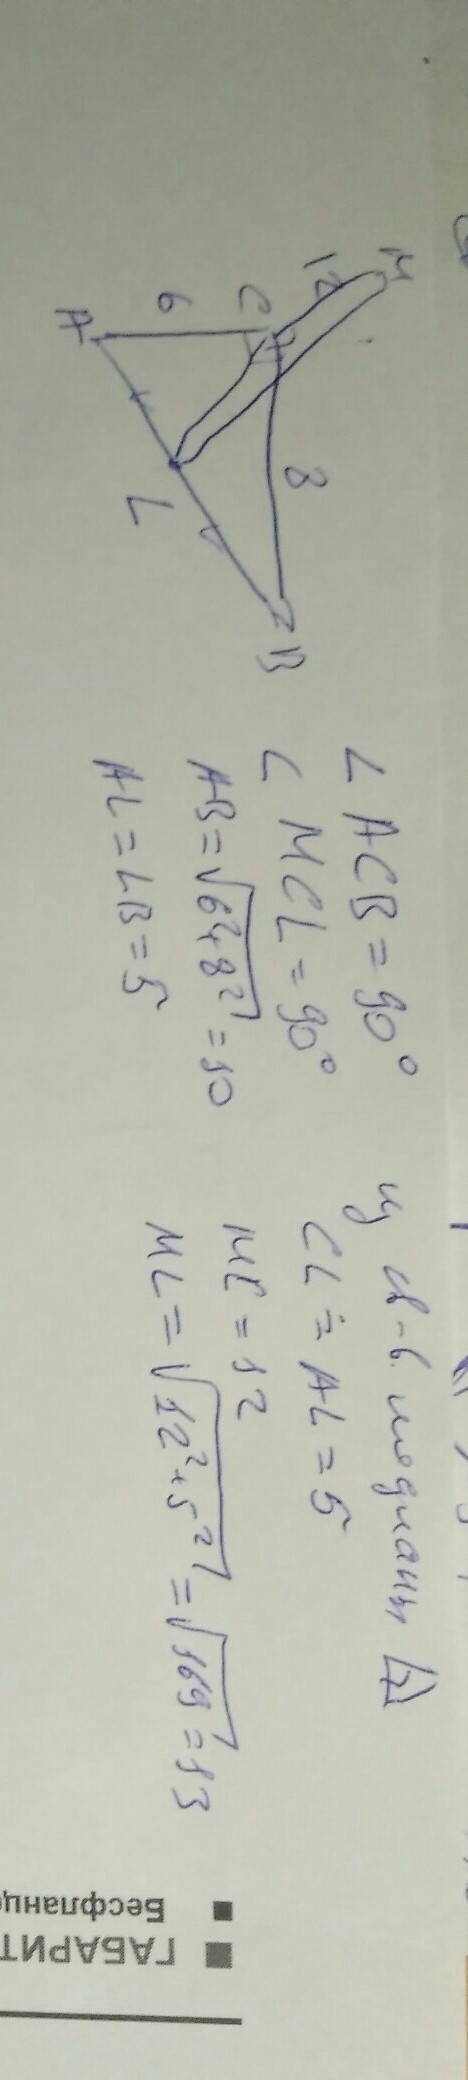 M
12
C
6
8
A
L
B
∠ ACB = 90°
∠ MCL = 90°
AB = √6²+8² = 10
AL = LB = 5
из св-в медианы
CL = AL = 5
MC = 12
ML = √12²+5² = √169 = 13
■ ГАБАРИТ
■ Бесфланц